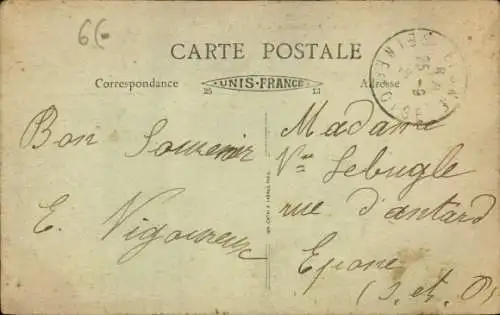 6€
CARTE POSTALE
Correspondance
UNIS-FRANCE
Adresse
25
13
Bon Souvenir
E. Vigoureux
Madame
Vve Lebugle
rue d'antard
Epone
(S. et. O)